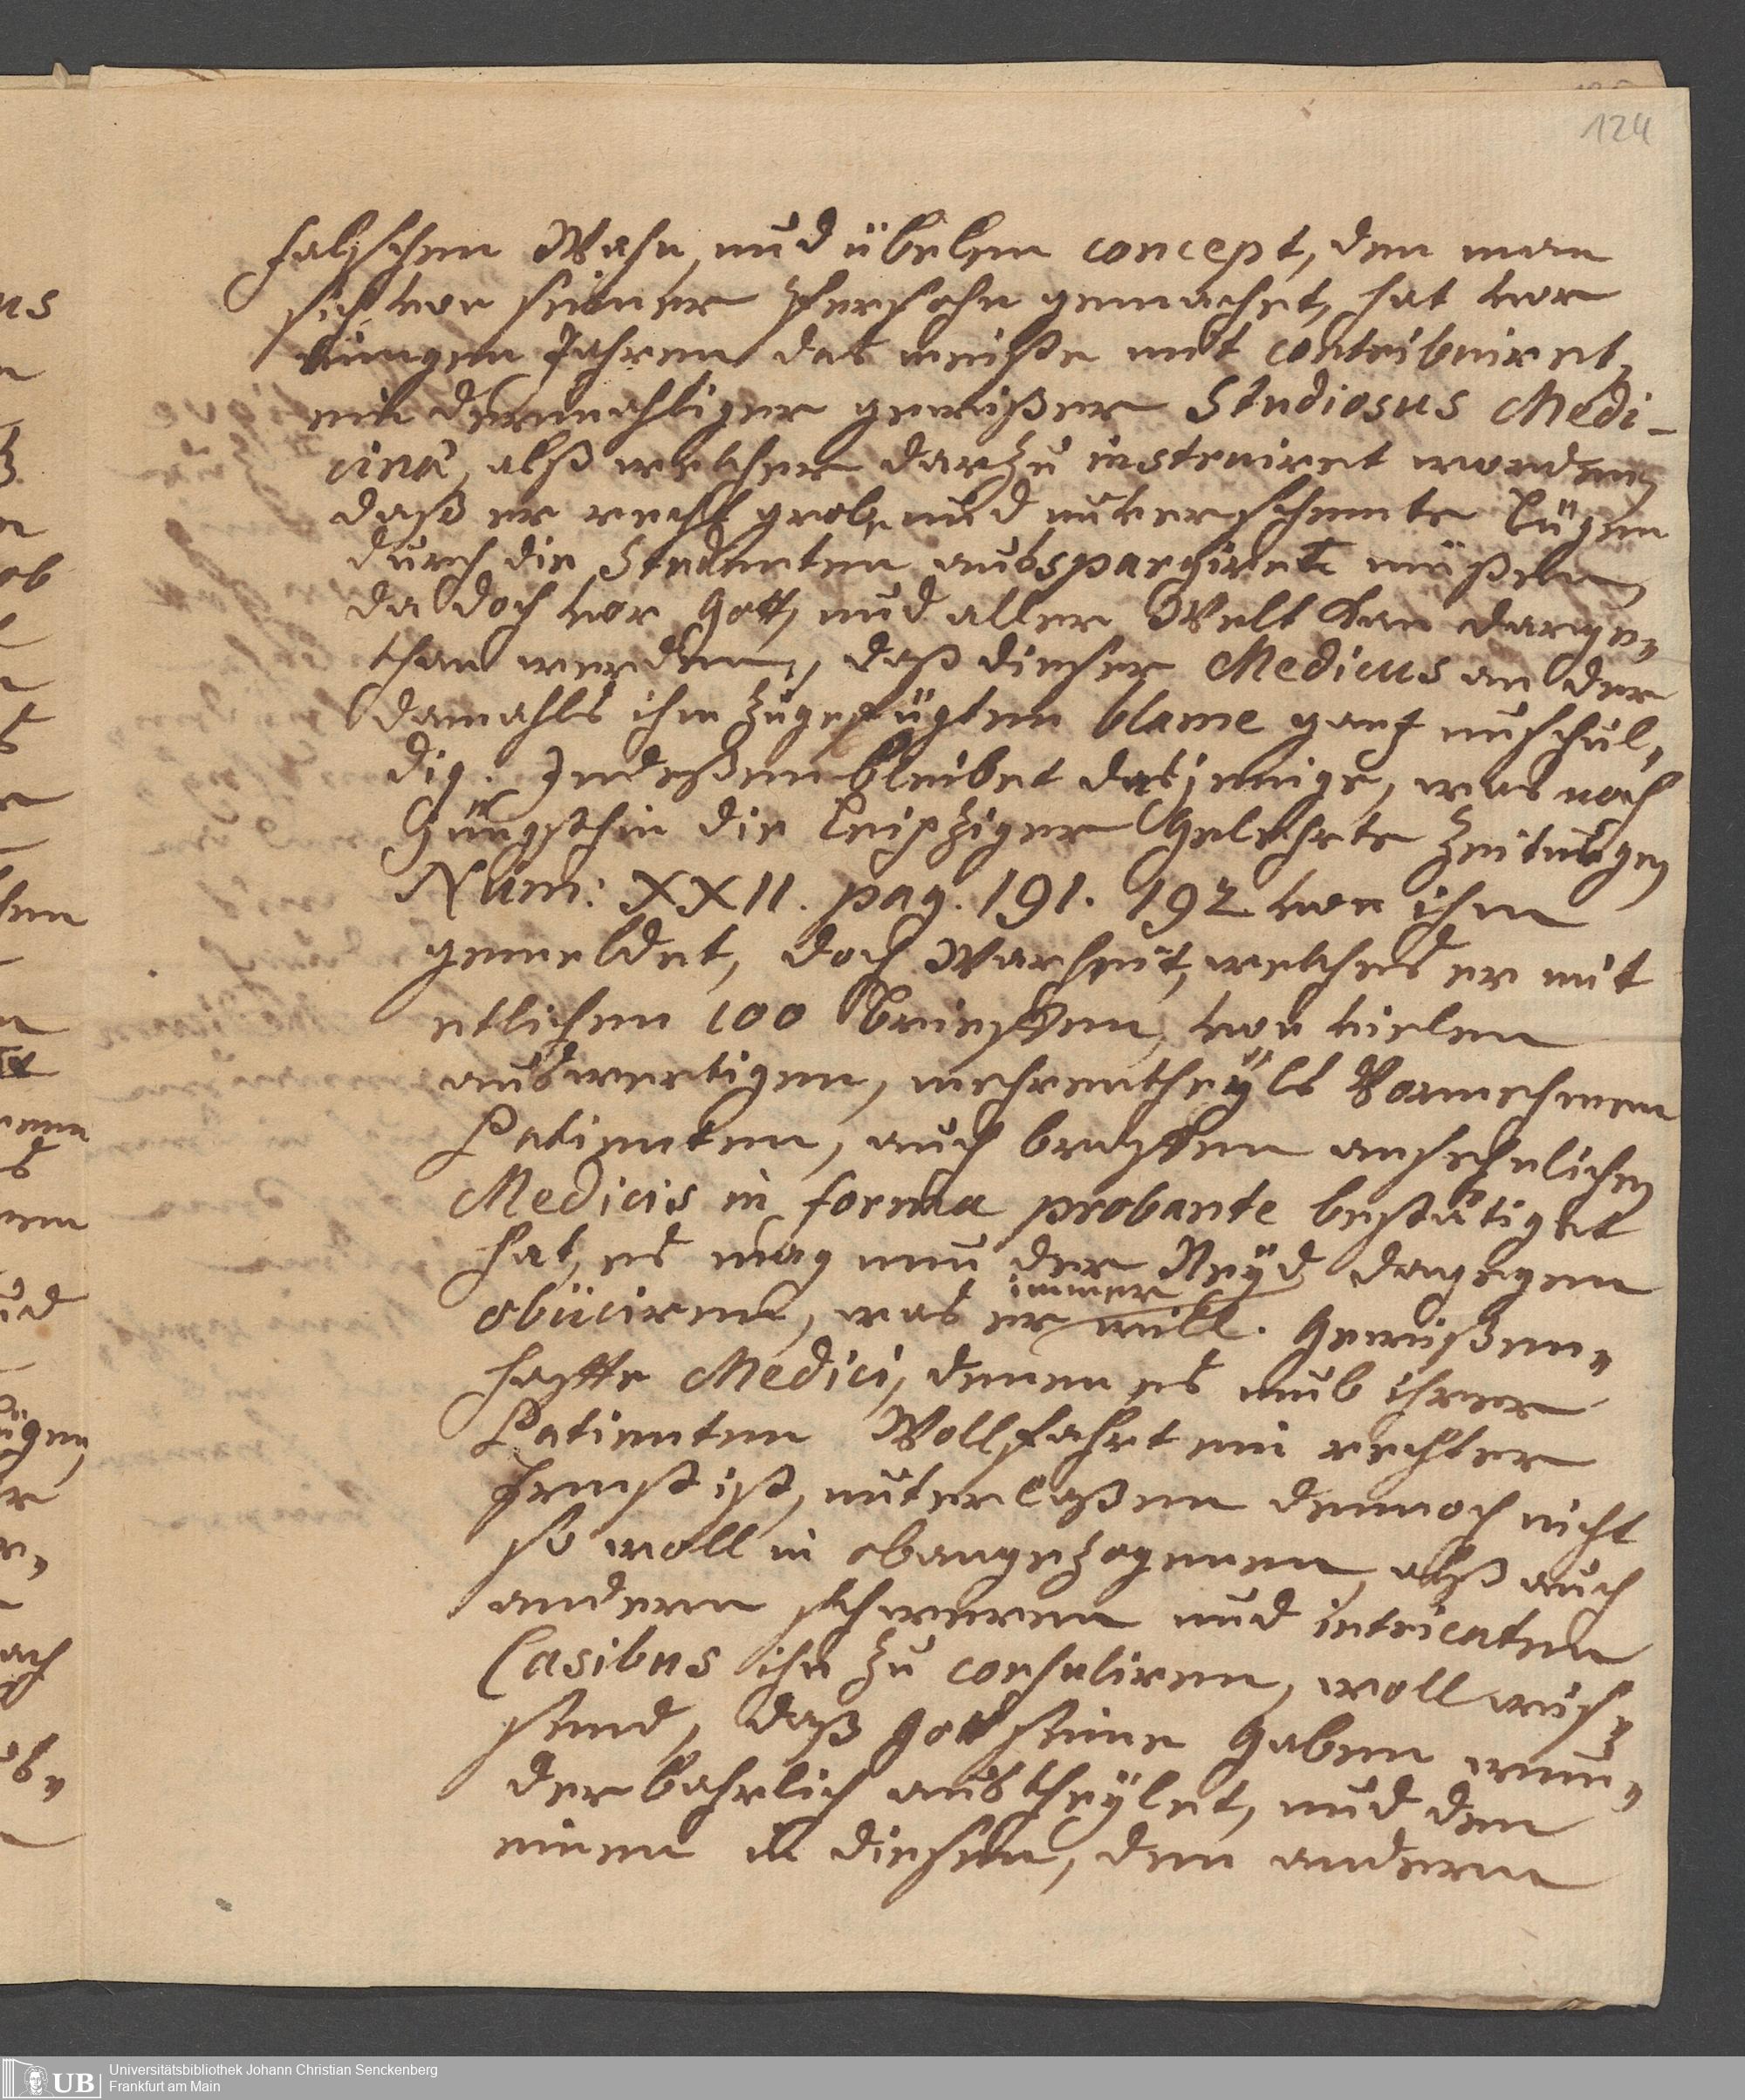 124
falschen Wahn, und übelen concept, den man
sich von seiner Persohn gemachet, hat vor
einigen Jahren das meiste mit contribuiret,
ein dermahliger gewißer Studiosus Medi-
cinæ, alß welcher darzu instruiret worden,
daß er recht grobe und unverschemte Lügen
durch die Studenten ausspargiret müßen,
da doch vor Gott, und aller Welt kan darge„
than werden, daß dieser Medicus an der
damahls ihm zugefügten blame gantz unschul„
dig. Indeßen bleibet dasjenige, was noch
jüngsthin die Leipziger Gelehrte Zeitungen
Num: XXII. pag. 191. 192 von ihm
gemeldet, doch Warheit, welches er mit
etlichen 100 Brieffen, von vielen
auswertigen, mehrentheÿls Vornehmen
Patienten, auch braffen ansehnlichen
Medicis in forma probante bestätiget
hat, es mag nun der Neÿd dagegen
obiiciren, was er immer will. Gewißen„
haffte Medici, denen es umb ihrer
Patienten Wollfahrt ein rechter
Ernst ist, unterlaßen dennoch nicht
so woll in obangezogenen, alß auch
andern schweren und intricaten
Casibus ihn zu consuliren, woll wis„
send, daß Gott seine Gaben wun„
derbahrlich austheÿlet, und dem
einen in diesem, dem andern
UB Universitätsbibliothek Johann Christian Senckenberg
Frankfurt am Main